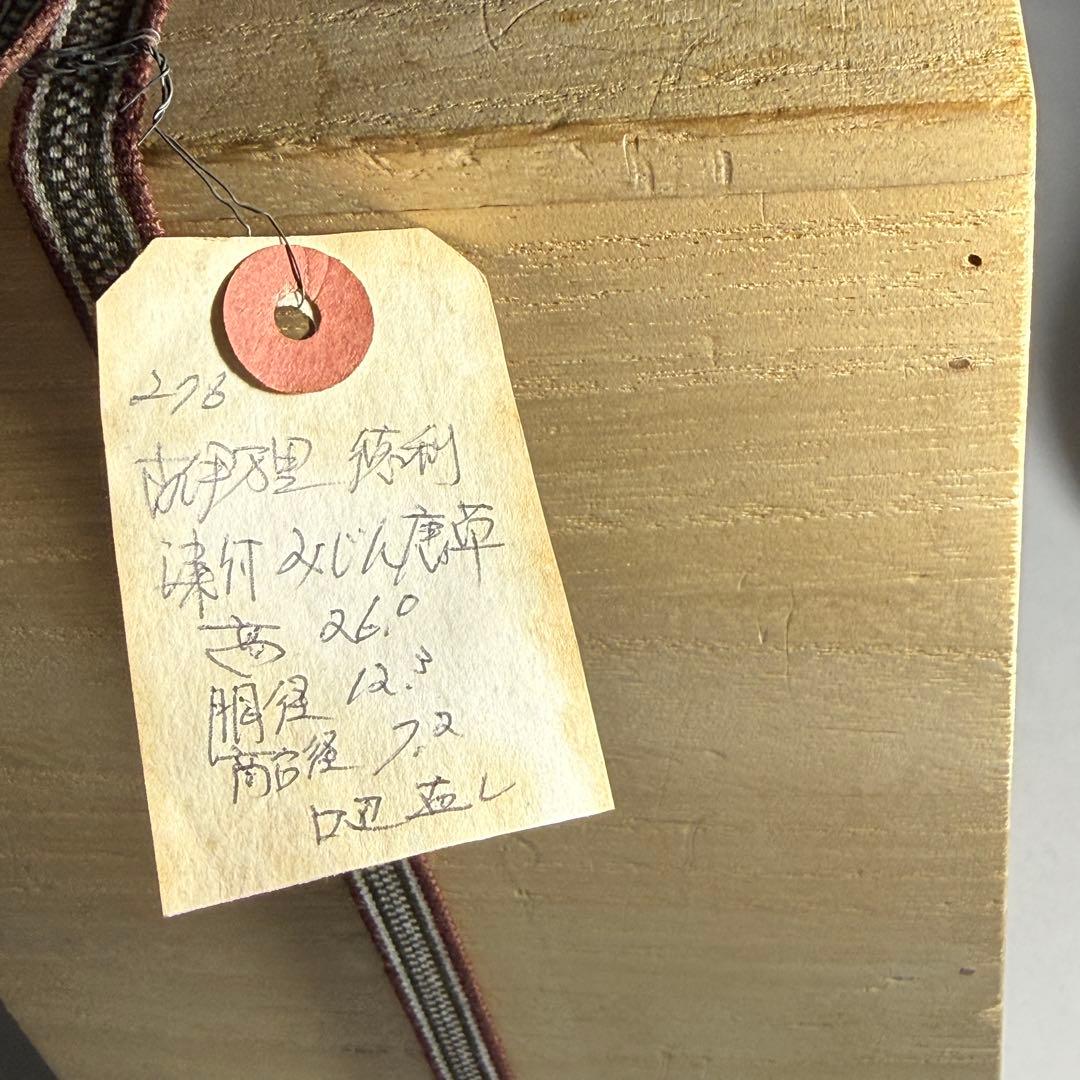 278
古伊万里 徳利
染付 みじん唐草
高 26.0
胴径 12.3
高台径 7.2
口辺 直し